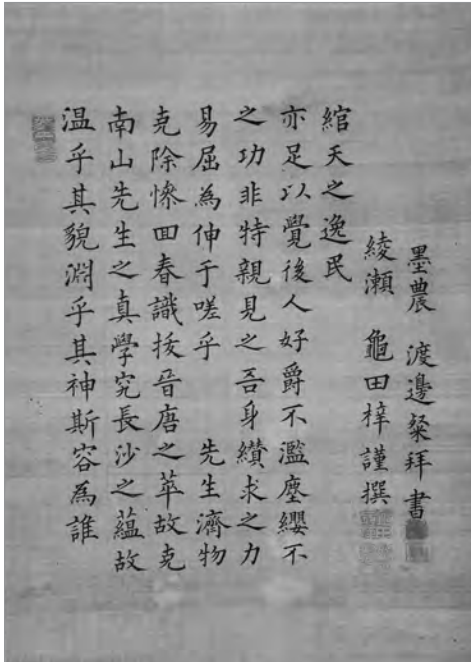 温乎其貌淵乎其神斯容為誰
南山先生之真學究長沙之蘊故
克除慘囬春識拔晉唐之萃故克
易屈為伸于嗟乎　先生濟物
之功非特親見之吾身纘求之力
亦足以覺後人好爵不濫塵纓不
綰天之逸民
綾瀬　龜田梓謹撰
墨農　渡邊粲拜書